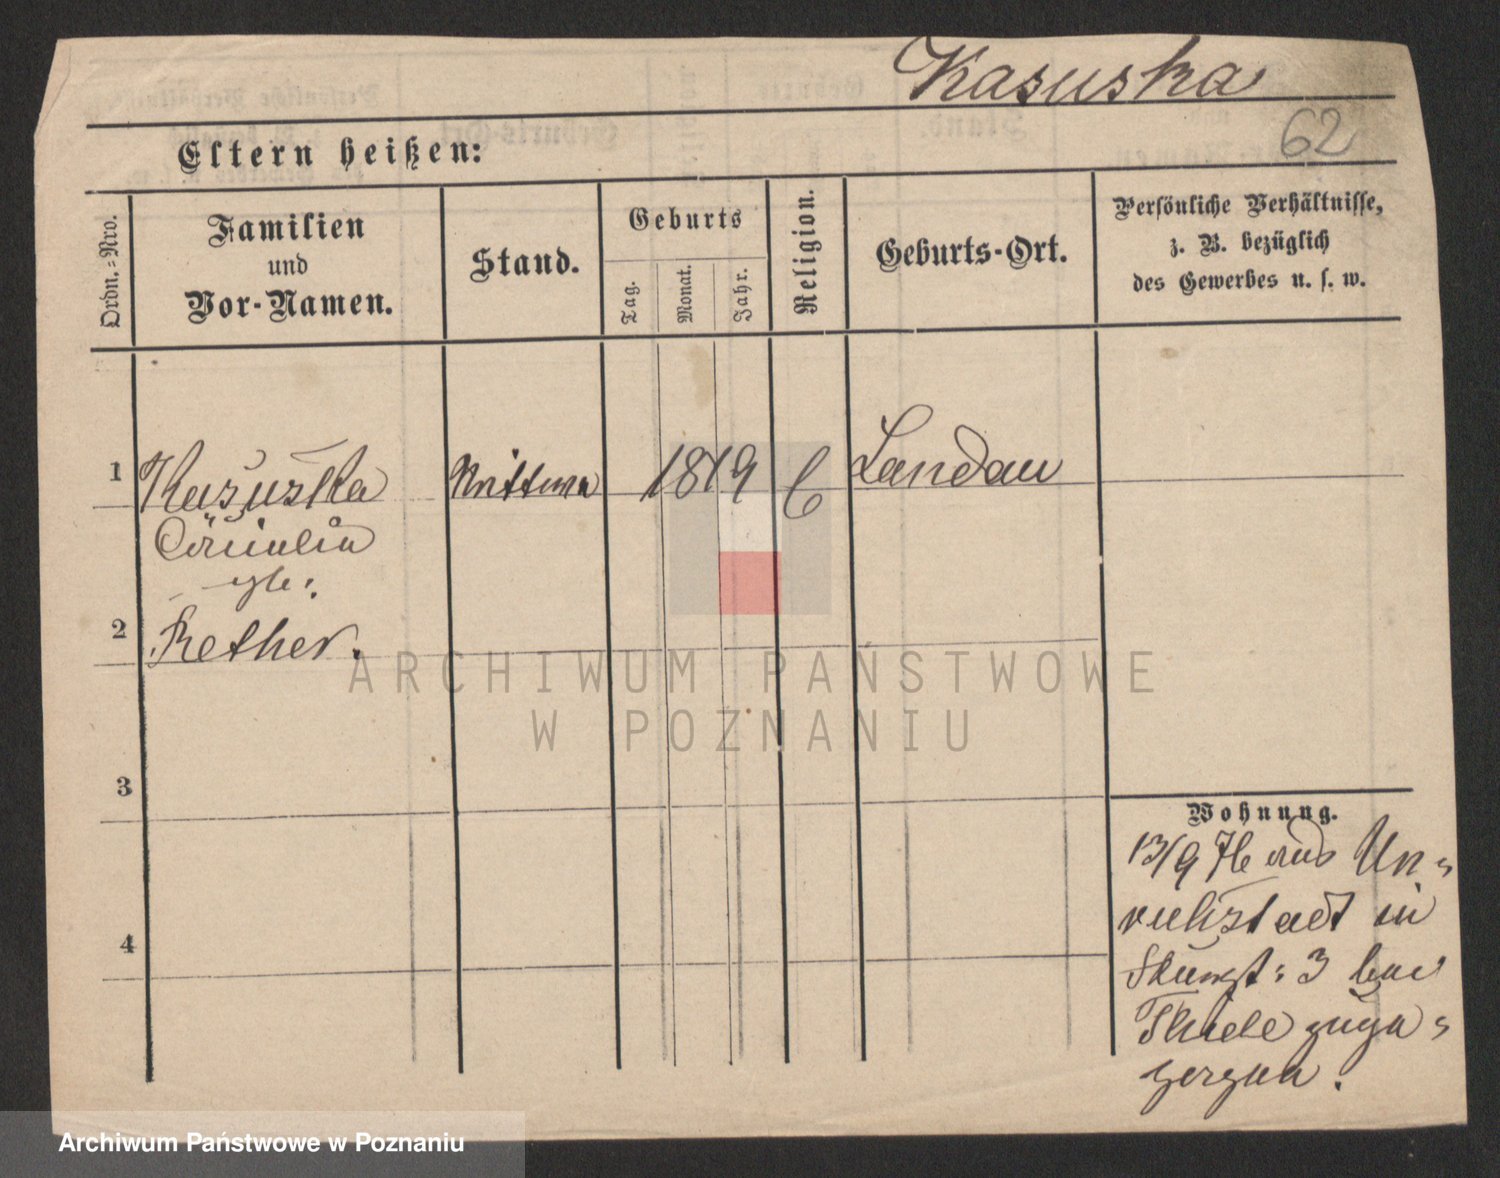 Kasuska
62
Eltern heißen:
Ordn.-Nro.
Familien
und
Vor-Namen.
Stand.
Geburts
Tag.
Monat.
Jahr.
Religion.
Geburts-Ort.
Persönliche Verhältnisse,
z. B. bezüglich
des Gewerbes u. s. w.
1
Kasuska
Wittwe
1819
Landau
gb:
2
Rether.
ARCHIWUM PAŃSTWOWE
W POZNANIU
3
Wohnung.
13/9 76 aus Un-
ruhstadt in
3 bei
Thiele zuge-
zogen.
4
Archiwum Państwowe w Poznaniu